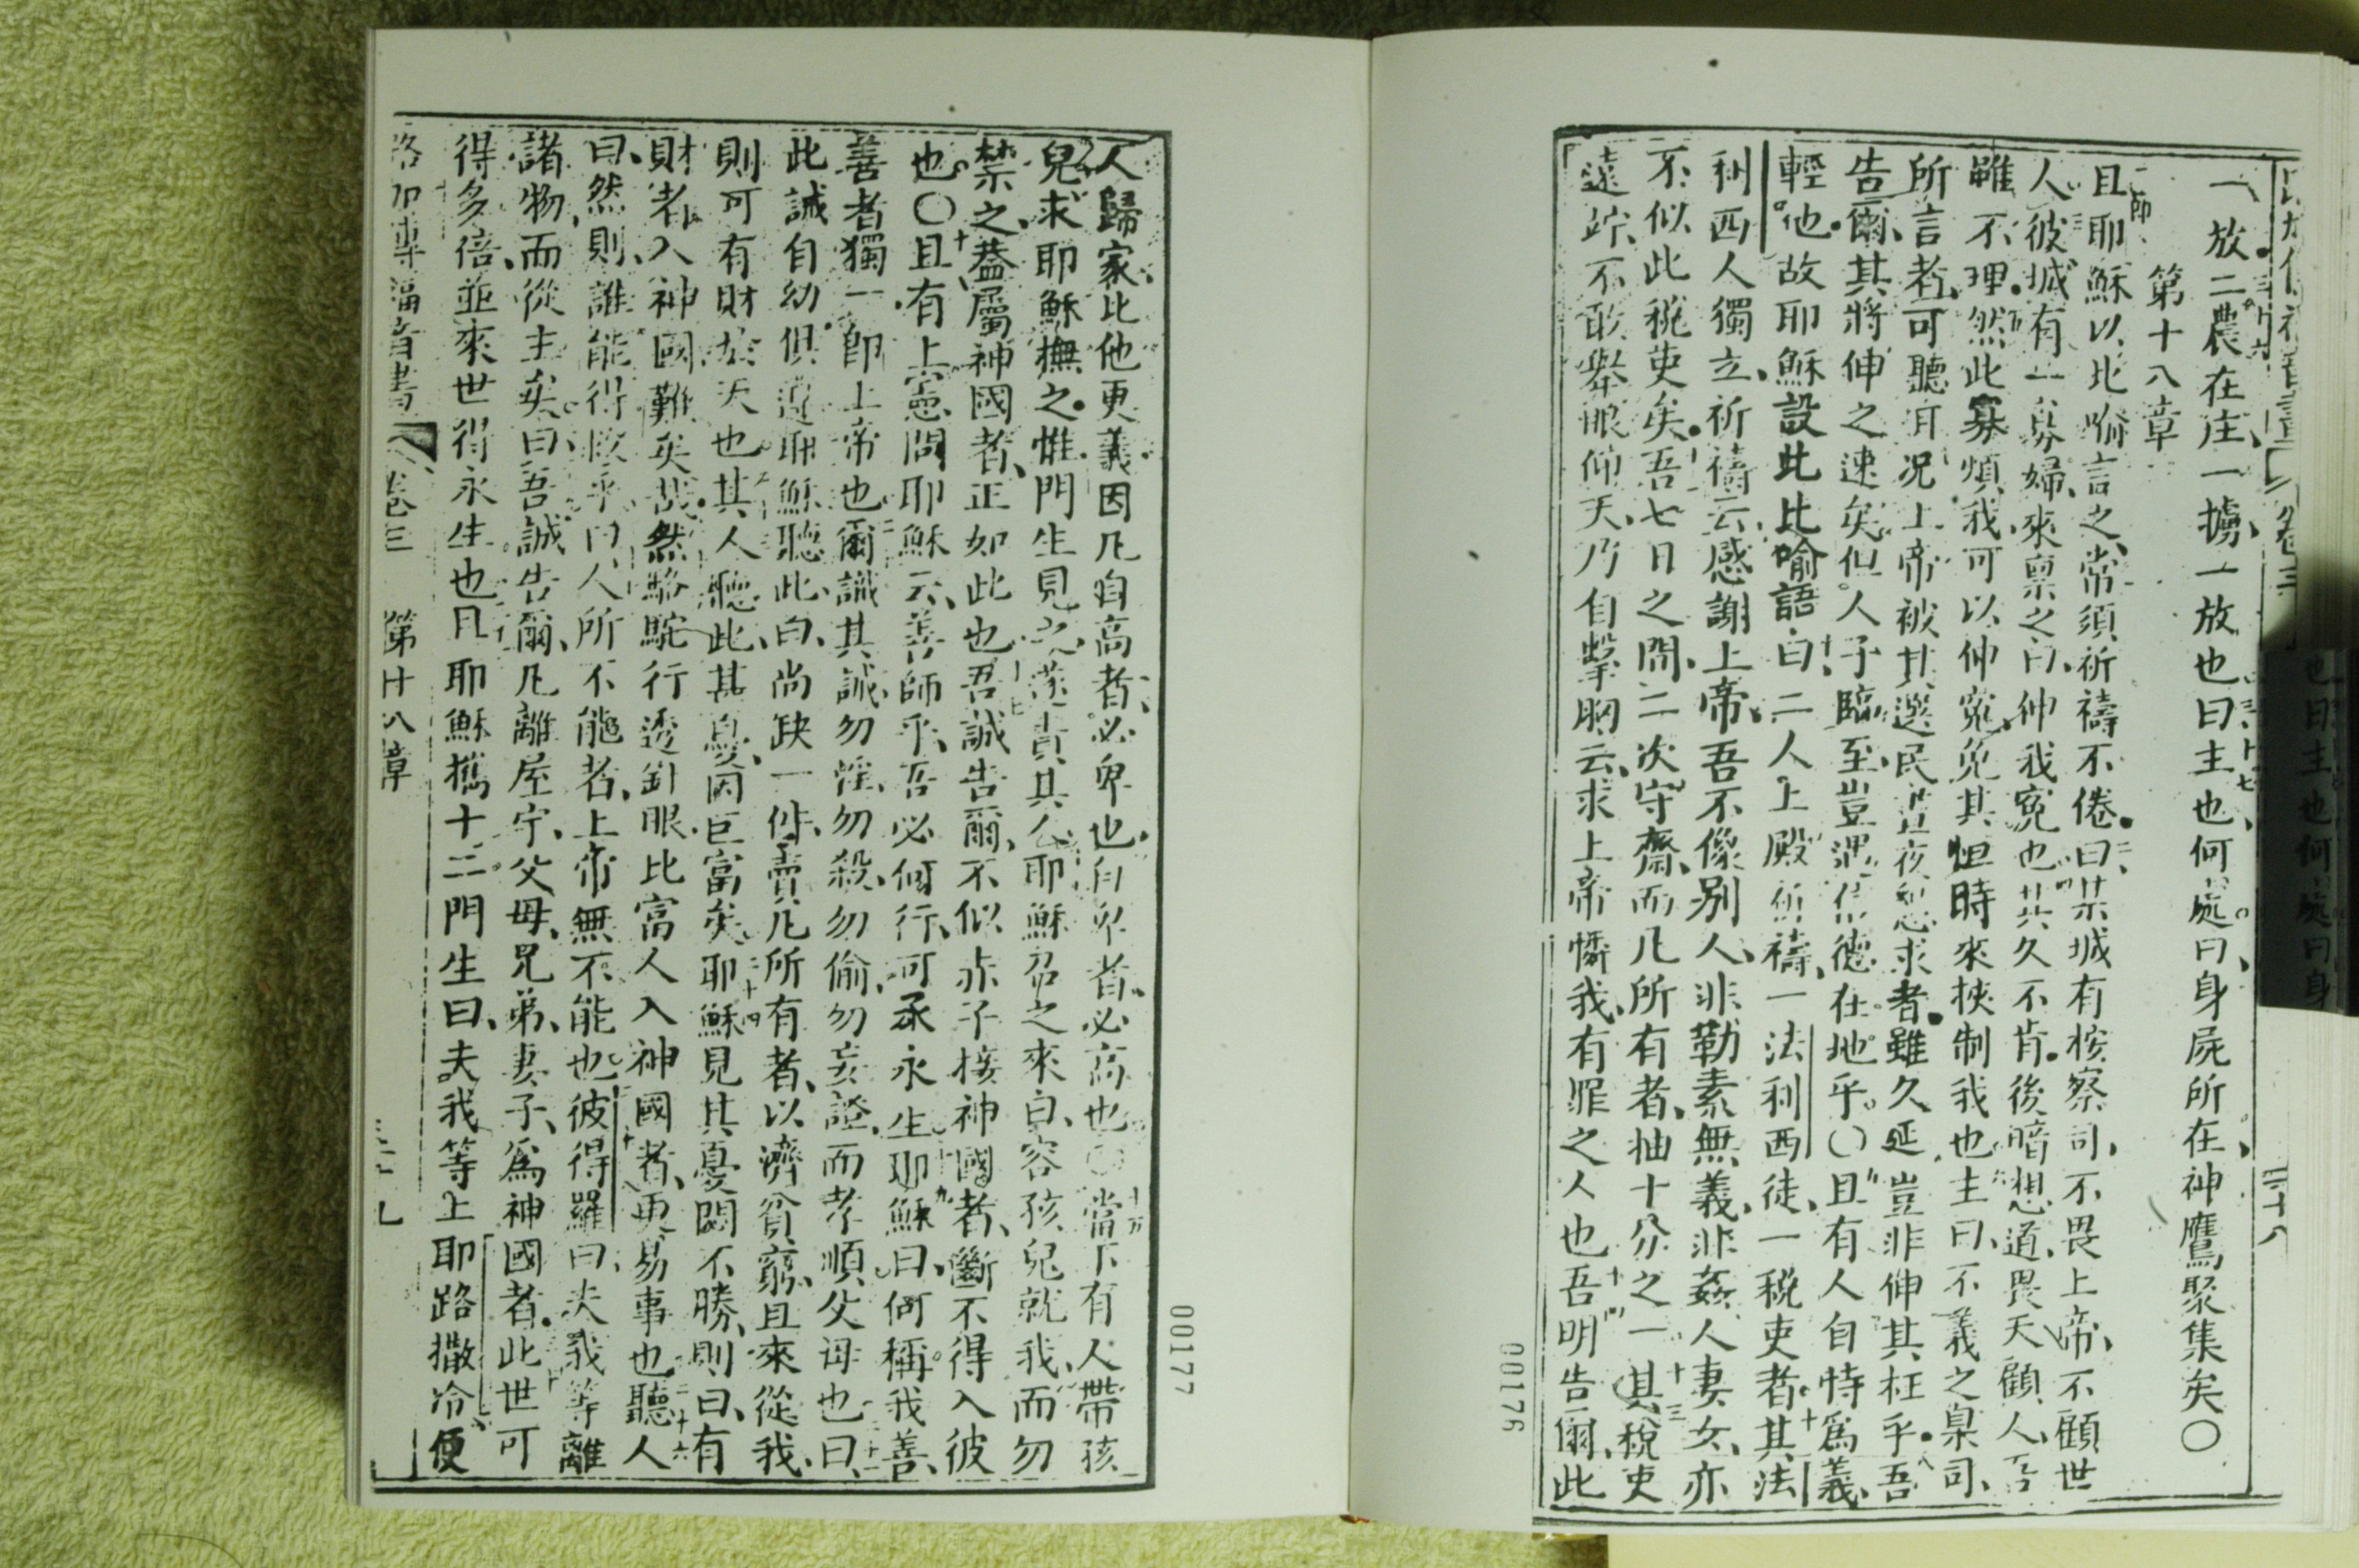 一放二農在庄一擄一放也曰主也何處曰身屍所在神鷹聚集矣〇
第十八章
且耶穌以比喻言之常須祈禱不倦曰某城有按察司不畏上帝不顧世
人彼城有一寡婦來稟之曰伸我冤也其久不肯後暗想道畏天顧人吾
雖不理然此寡煩我可以伸冤免其怛時來挾制我也主曰不義之臬司
所言者可聽耳况上帝被其選民昼夜懇求者雖久延豈非伸其枉乎吾
告爾其將伸之速矣但人子臨至豈遇信德在地乎〇且有人自恃爲義
輕他故耶穌設此比喻語曰二人上殿祈禱一法利西徒一稅吏者其法
利西人獨立祈禱云感謝上帝吾不像别人非勒素無義非姦人妻女亦
不似此稅吏矣吾七日之間二次守齋而凡所有者抽十分之一其稅吏
遠跕不敢舉眼仰天乃自擊胸云求上帝憐我有罪之人也吾明告爾此
00176
人歸家比他更義因凡自高者必卑也自卑者必高也〇當下有人帶孩
兒求耶穌撫之惟門生見之遂責其人耶穌召之來曰容孩兒就我而勿
禁之蓋屬神國者正如此也吾誠告爾不似赤子接神國者斷不得入彼
也〇且有上憲問耶穌云善師乎吾必何行可承永生耶穌曰何稱我善
善者獨一即上帝也爾識其誡勿淫勿殺勿偷勿妄證而孝順父母也曰
此誡自幼俱遵耶穌聽此曰尚缺一件賣凡所有者以濟貧窮且來從我
則可有財於天也其人聽此甚憂因巨富矣耶穌見其憂悶不勝則曰有
財者入神國難矣哉然駱駝行透針眼比富人入神國者更易事也聽人
曰然則誰能得救乎曰人所不能者上帝無不能也彼得羅曰夫我等離
諸物而從主矣曰吾誠告爾凡離屋宇父母兄弟妻子爲神國者此世可
得多倍並來世得永生也且耶穌攜十二門生曰夫我等上耶路撒冷便
路加傳福音書 卷三 第十八章
00177